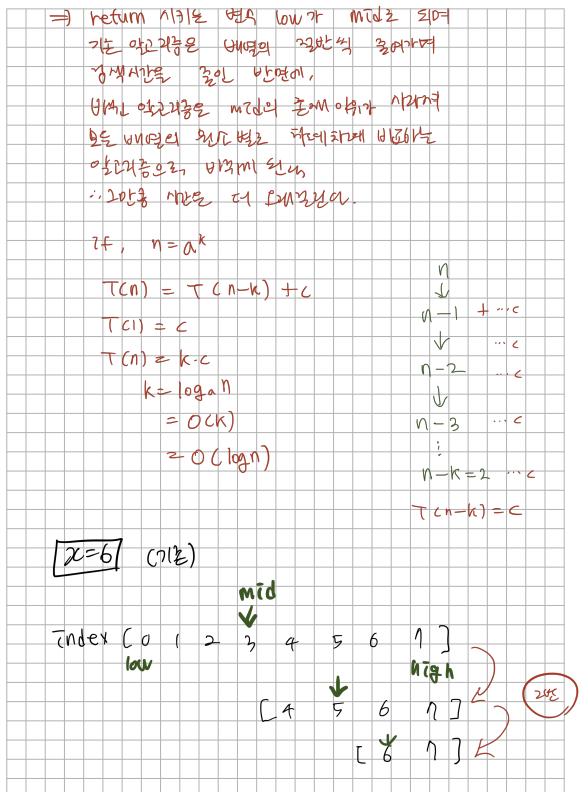 ⇒ return 시키는 변수 low가 mid로 되며
기존 알고리즘은 배열의 절반씩 줄어가며
검색시간을 줄인 반면에,
바뀐 알고리즘은 mid의 존재 이유가 사라져
모든 배열의 원소별로 차례차례 비교하는
알고리즘으로 바뀌게 된다.
∴ 그만큼 시간은 더 오래걸린다.
if, n = a^k
T(n) = T(n-k) + c
T(1) = c
T(n) = k·c
k = log_a n
= O(k)
= O(log n)
n
↓
n-1 + ···c
↓ ···c
n-2 ···c
↓
n-3 ···c
⋮
n-k=2 ···c
T(n-k) = c
x=6 (기존)
mid
↓
index [0 1 2 3 4 5 6 7]
low high
[4 5 6 7]
2번
[6 7]